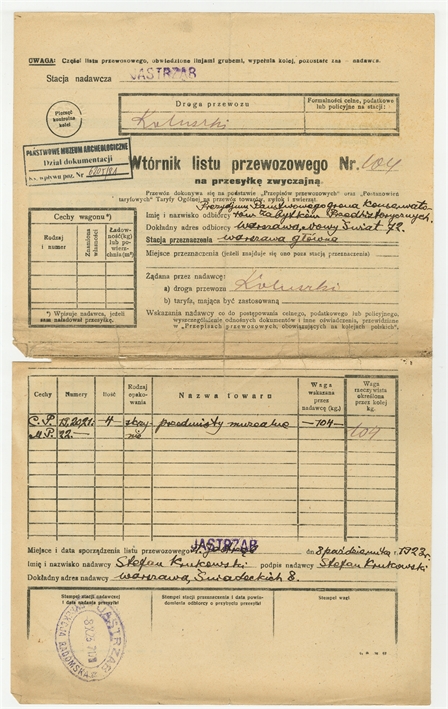 UWAGA: Część listu przewozowego, obwiedzione linjami grubemi, wypełnia kolej, pozostałe zaś - nadawca.
Stacja nadawcza JASTRZĄB
Droga przewozu
Koluszki
Formalności celne, podatkowe lub policyjne na stacji:
Pieczęć kontrolna kolei
PAŃSTWOWE MUZEUM ARCHEOLOGICZNE
Dział dokumentacji
Wtórnik listu przewozowego Nr. 104
na przesyłkę zwyczajną.
Przewóz dokonywa się na podstawie „Przepisów przewozowych" oraz „Postanowień taryfowych" Taryfy Ogólnej na przewóz towarów, zwłok i zwierząt.
Prezydjum Państwowego Grona Konserwato-
Imię i nazwisko odbiorcy rów Zabytków Przedhistorycznych.
Dokładny adres odbiorcy Warszawa, Nowy Świat 72.
Stacja przeznaczenia Warszawa główna
Miejsce przeznaczenia (jeżeli znajduje się ono poza stacją przeznaczenia)
Cechy wagonu *)
Rodzaj i numer
Znamiona własności
Ładowność(kg) lub powierzchnia(m²)
*) Wpisuje nadawca, jeżeli sam naładował przesyłkę.
Żądana przez nadawcę:
a) droga przewozu Koluszki
b) taryfa, mająca być zastosowaną
Wskazania nadawcy co do postępowania celnego, podatkowego lub policyjnego, wyszczególnienie odnośnych dokumentów i inne oświadczenia, przewidziane w „Przepisach przewozowych, obowiązujących na kolejach polskich".
Cechy Numery Ilość Rodzaj opakowania Nazwa towaru Waga wskazana przez nadawcę (kg.) Waga rzeczywista określona przez kolej kg.
C.P. 19.20.21. 4 skrzy- przedmioty muzealne —104— 104
M.P. 22.— nie
JASTRZĄB
Miejsce i data sporządzenia listu przewozowego dn 8 października r. 1923 r.
Imię i nazwisko nadawcy Stefan Krukowski podpis nadawcy Stefan Krukowski
Dokładny adres nadawcy Warszawa, Śniadeckich 8.
Stempel stacji nadawczej i data nadania przesyłki
Stempel stacji przeznaczenia i data powiadomienia odbiorcy o przybyciu przesyłki
Stempel wagi
JASTRZĄB